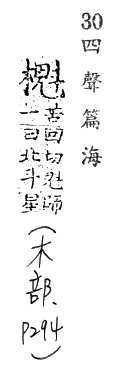 30 四聲篇海
櫆
苦回切魁師
一曰北斗星
(木部、P294)